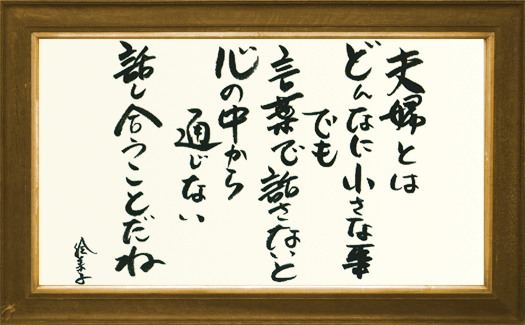 夫婦とは
どんなに小さな事
でも
言葉で話さないと
心の中から
通じない
話し合うことだね